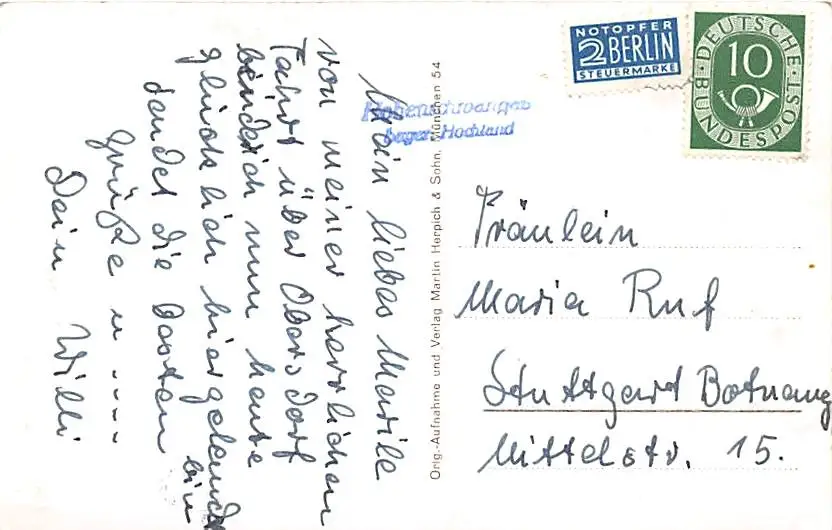 Mein liebes Marile
von meiner herrlichen
Fahrt über Oberstdorf
bin ich nun heute
glücklich hier gelandet
sendet die besten
Grüße u .....
Dein Willi
Hohenschwangau
bayer. Hochland
Orig.-Aufnahme und Verlag Martin Herpich & Sohn, München 54
NOTOPFER
2 BERLIN
STEUERMARKE
DEUTSCHE
10
BUNDESPOST
Fräulein
Maria Ruf
Stuttgart Botnang
Mittelstr. 15.